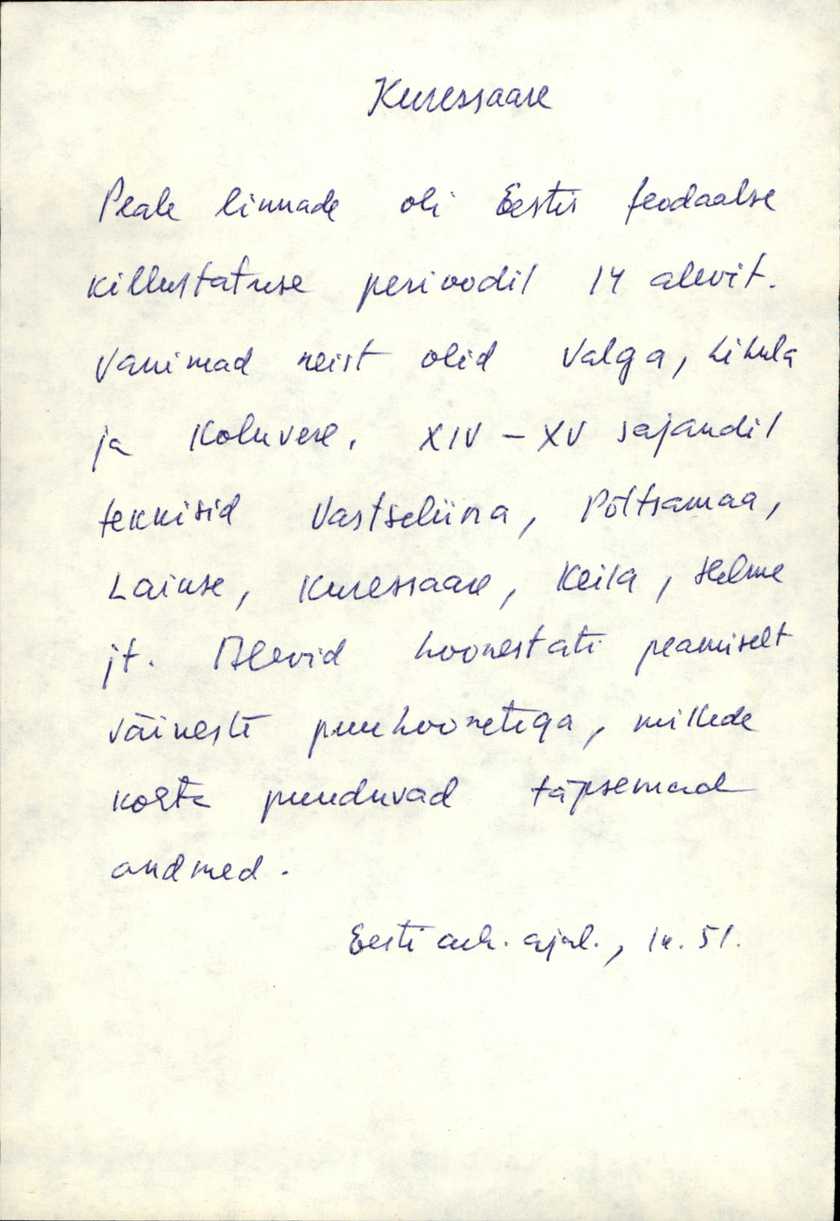 Kuressaare
Peale linnade oli Eestis feodaalse
killustatuse perioodil 14 alevit.
Vanimad neist olid Valga, Lihula
ja Koluvere. XIV – XV sajandil
tekkisid Vastseliina, Põltsamaa,
Laiuse, Kuressaare, Keila, Helme
jt. Alevid hoonestati peamiselt
väineste puuhoonetega, millede
kohta puuduvad täpsemad
andmed.
Eesti arh. ajal., lk. 51.